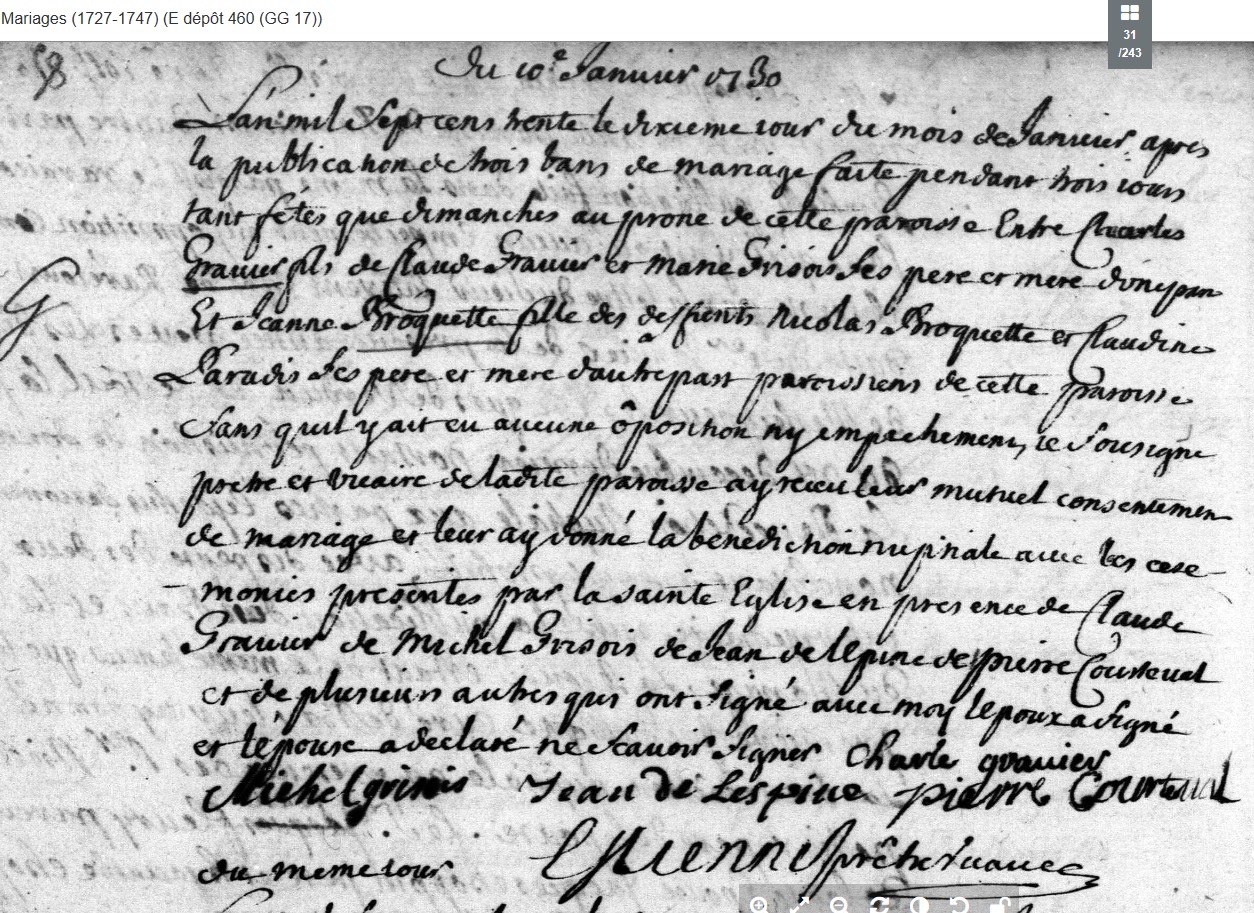 Mariages (1727-1747) (E dépôt 460 (GG 17))
31
/243
58
Du 10e Janvier 1730
L'an mil sept cens trente le dixieme iour du mois de Janvier apres
la publication de trois bans de mariage faite pendant trois iours
tant fêtes que dimanches au prone de cette paroisse Entre Charles
Gravier fils de Claude Gravier et Marie Grisois ses pere et mere d'une part
G
Et Jeanne Broquette fille des deffunts Nicolas Broquette et Claudine
Paradis ses pere et mere d'autre part paroissiens de cette paroisse
sans qu'il y ait eu aucune ôposition ny empechement, ie sousigné
pretre et vicaire de ladite paroisse ay receu leur mutuel consentemen
de mariage et leur ay donné la benediction nuptiale avec les cere
monies presentes par la sainte Eglise en presence de Claude
Gravier de Michel Grisois de Jean de lepine de pierre Courteval
et de plusieurs autres qui ont signé avec moy lepoux a signé
et lépouse a declaré ne scavoir signer Charle gravier
Michel Jean de Lespine pierre Courteval
prêtre vicaire
du meme iour